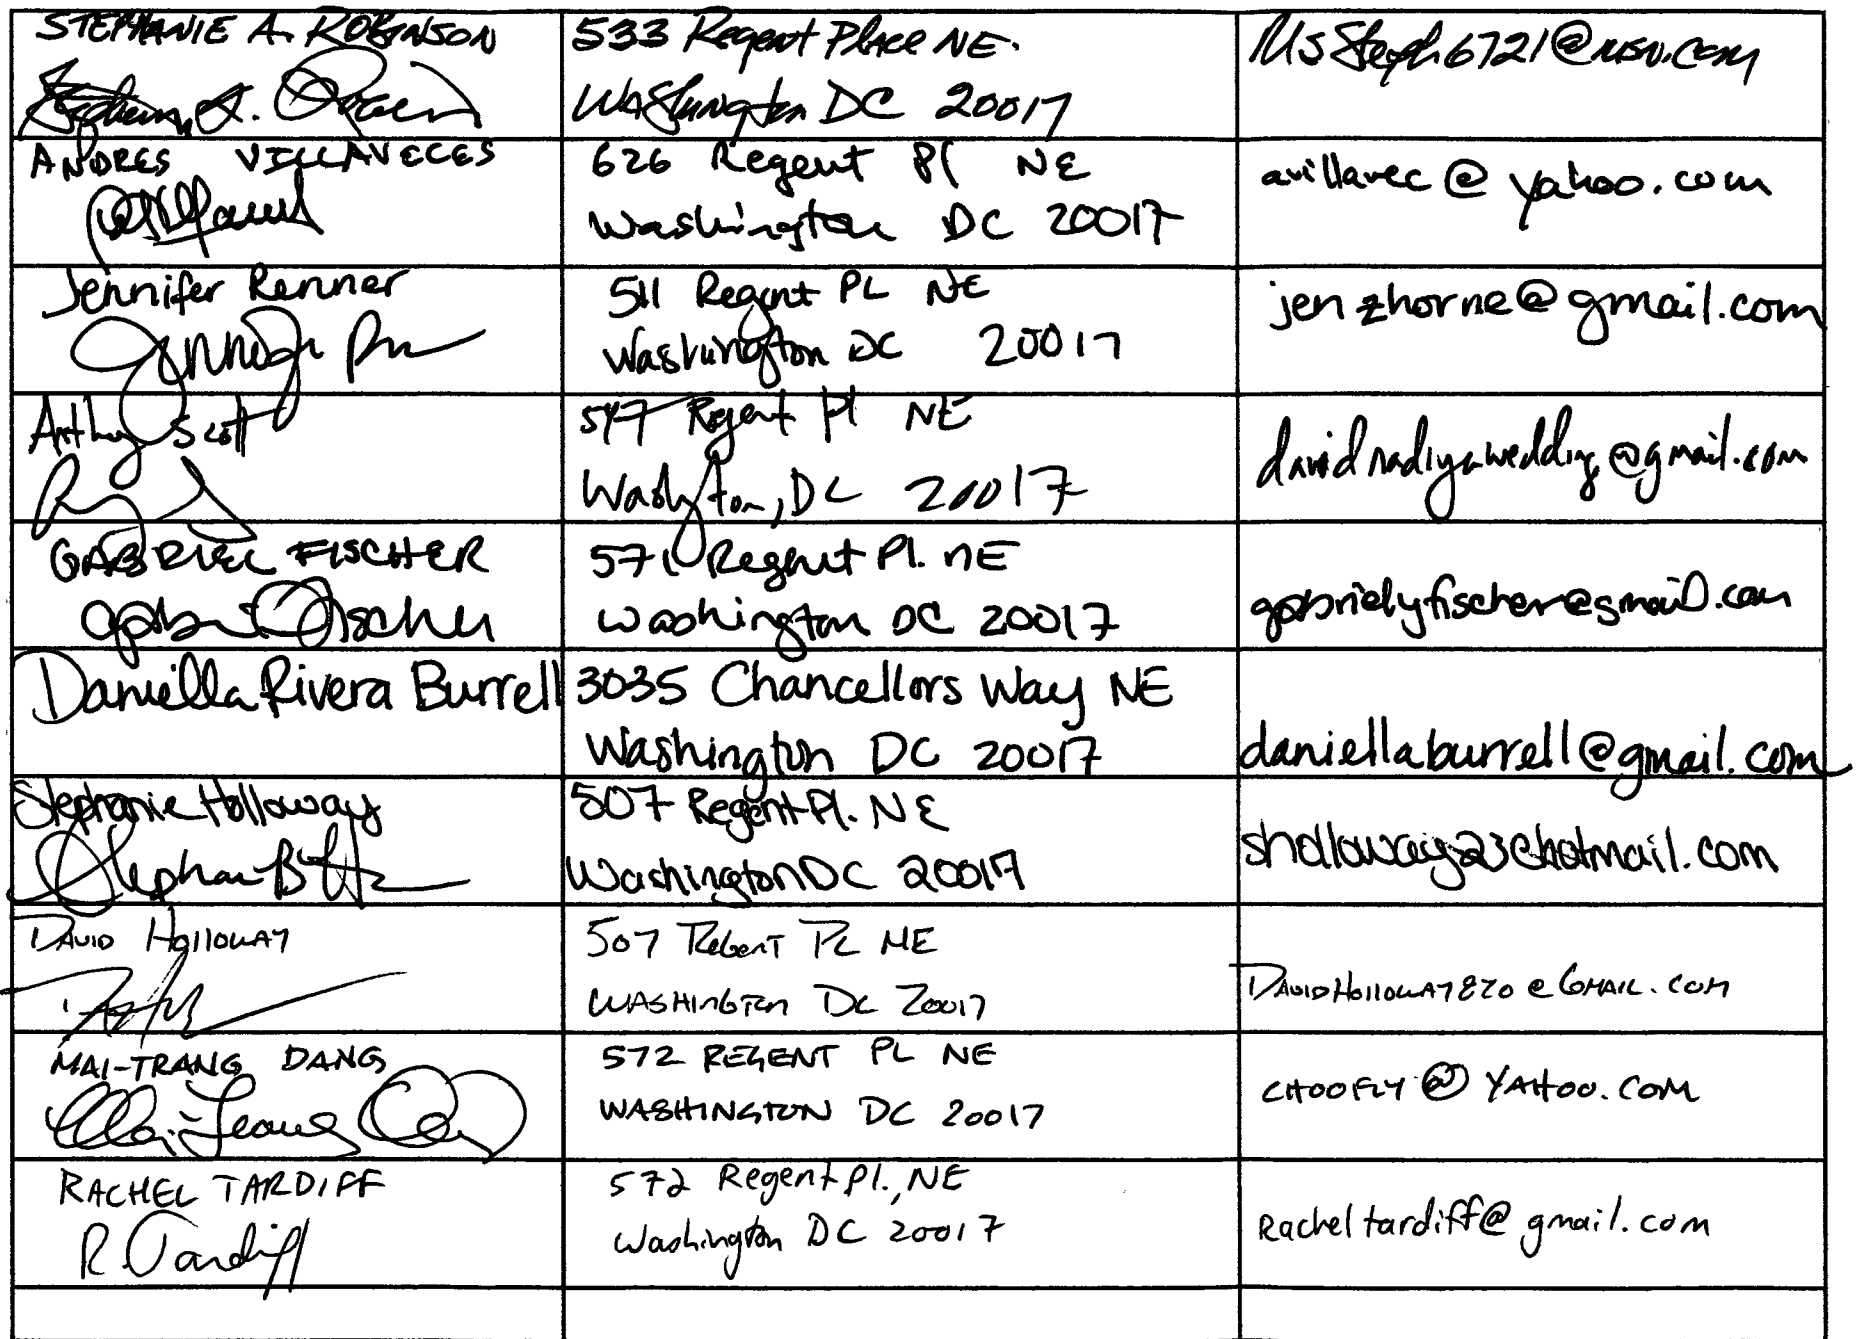 STEPHANIE A. ROBINSON
533 Regent Place NE.
Washington DC 20017
MsSteph6721@msn.com
ANDRES VILLAVECES
626 Regent Pl NE
Washington DC 20017
avillavec@yahoo.com
Jennifer Renner
511 Regent PL NE
Washington DC 20017
jenzhorne@gmail.com
Anthony Scott
547 Regent Pl NE
Washington, DC 20017
davidnadiyawedding@gmail.com
GABRIEL FISCHER
571 Regent Pl. NE
Washington DC 20017
gabrielyfischer@gmail.com
Daniella Rivera Burrell
3035 Chancellors Way NE
Washington DC 20017
daniellaburrell@gmail.com
Stephanie Holloway
507 Regent Pl. NE
Washington DC 20017
sholloway23@hotmail.com
DAVID HOLLOWAY
507 REGENT PL NE
WASHINGTON DC 20017
DAVIDHOLLOWAY820@GMAIL.COM
MAI-TRANG DANG
572 REGENT PL NE
WASHINGTON DC 20017
CHOOFLY@YAHOO.COM
RACHEL TARDIFF
R Tardiff
572 Regent Pl., NE
Washington DC 20017
Racheltardiff@gmail.com